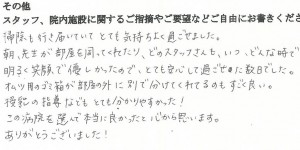 その他
スタッフ、院内施設に関するご指摘やご要望などご自由にお書きくださ
掃除も行き届いていてとても気持ちよく過ごせました。
朝、先生が部屋を回ってくれたり、どのスタッフさんも、いつ、どんな時で
明るく笑顔で優しかったので、とても安心して過ごせた数日でした。
オムツ用のゴミ箱が部屋の外に別で分けてくれてるのもすごく良い。
授乳の指導などもとても分かりやすかった!
この病院を選んで本当に良かったと心から思います。
ありがとうございました!